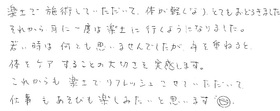 楽士で施術していただいて、体が軽くなりとてもおどろきました
それから月に一度は楽士に行くようになりました。
若い時は何とも思いませんでしたが、年を重ねると、
体をケアすることの大切さを実感します。
これからも楽士でリフレッシュさせていただいて
仕事もあそびも楽しみたいと思います